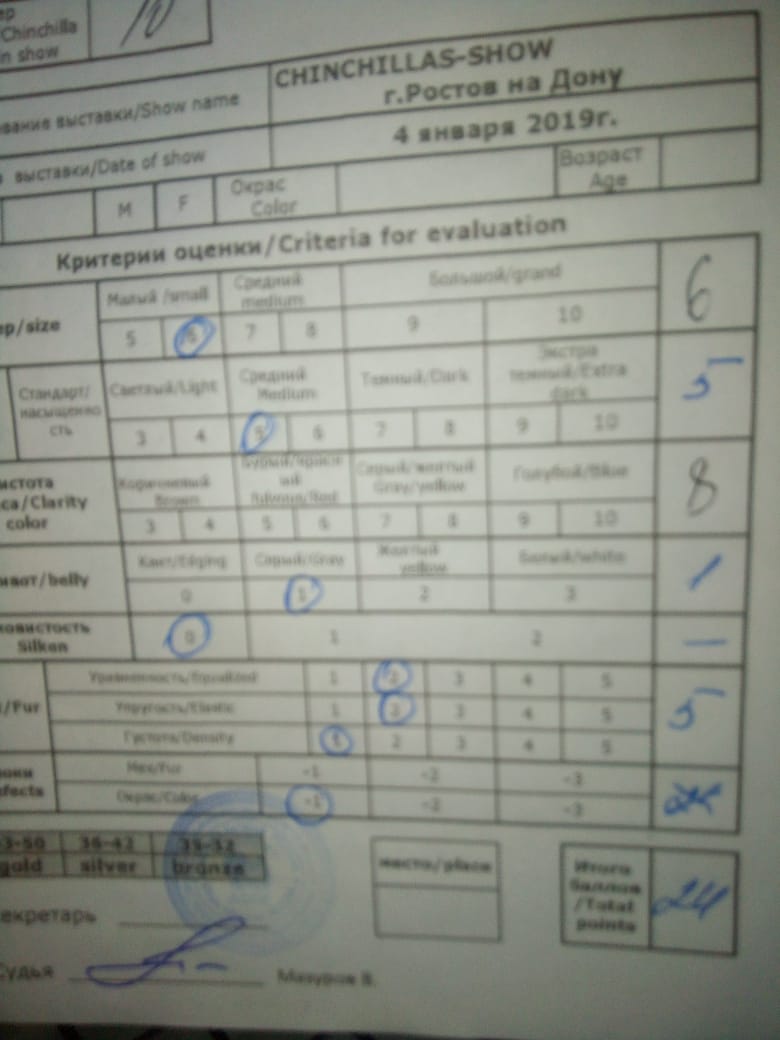 ер
Chinchilla 10
n show
CHINCHILLAS-SHOW
г.Ростов на Дону
вание выставки/Show name
4 января 2019г.
выставки/Date of show
M F Окрас Color Возраст Age
Критерии оценки/Criteria for evaluation
ер/size Малый /small Средний medium Большой/grand 6
5 6 7 8 9 10
Стандарт/насыщенность Светлый/Light Средний Medium Темный/Dark Экстра темный/Extra dark 5
3 4 5 6 7 8 9 10
истота са/Clarity color Коричневый Brown Серый/желтый Gray/yellow Голубой/Blue 8
3 4 5 6 7 8 9 10
ивот/belly Кант/Edging Серый/Gray Желтый yellow Белый/white 1
0 1 2 3
овистость Silken 0 1 2 —
/Fur Уравненность/Equalized 1 2 3 4 5 5
Упругость/Elastic 1 2 3 4 5
Густота/Density 1 2 3 4 5
Мех/Fur -1 -2 -3
fects Окрас/Color -1 -2 -3
3-50 36-42
gold silver bronze
место/place
Итого баллов /Total points 24
екретарь
Судья Мазуров В.